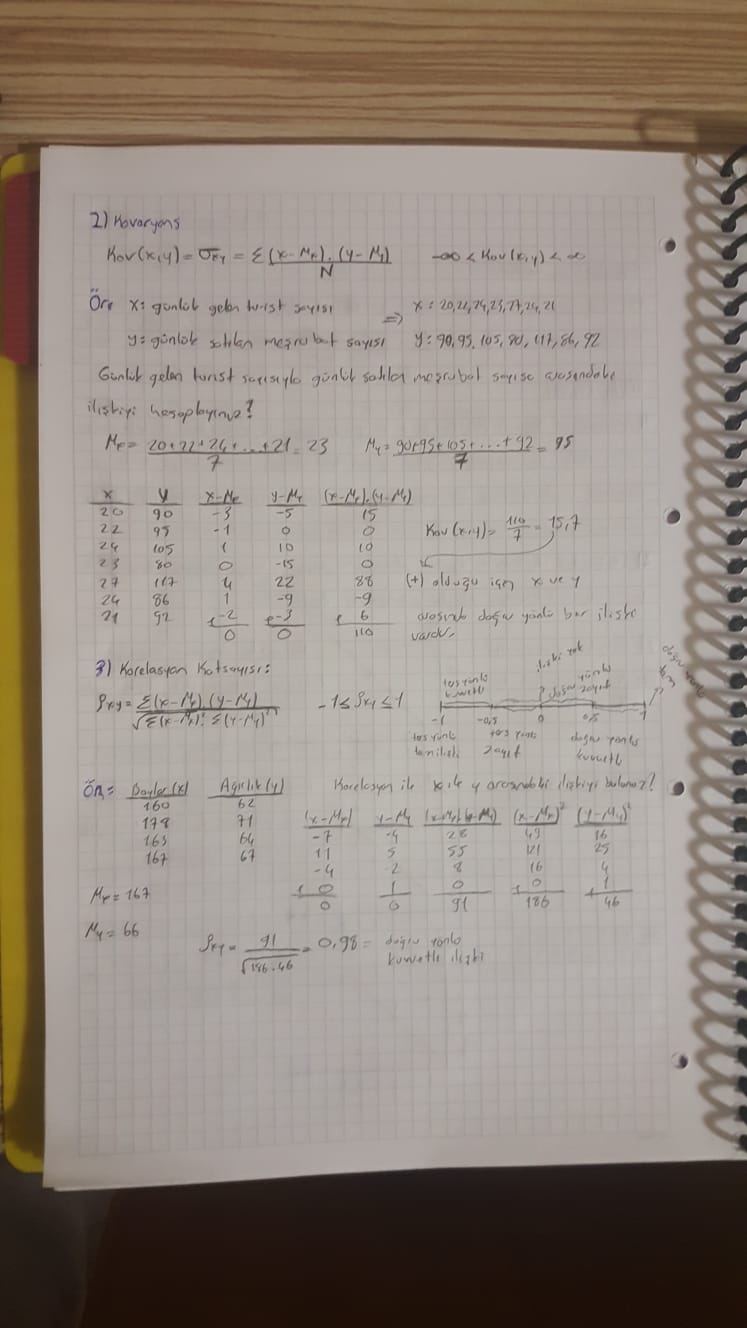 2) Kovaryans
Kov(x,y) = σxy = Σ (x-Mx).(y-My) / N    -∞ < Kov(x,y) < ∞
Ör: x: günlük gelen turist sayısı => x: 20,22,24,23,27,24,21
y: günlük satılan meşrubat sayısı y: 90, 95, 105, 80, 117, 86, 92
Günlük gelen turist sayısıyla günlük satılan meşrubat sayısı arasındaki
ilişkiyi hesaplayınız?
Mx = 20+22+24+...+21 / 7 = 23    My = 90+95+105+...+92 / 7 = 95
x y x-Mx y-My (x-Mx).(y-My)
20 90 -3 -5 15
22 95 -1 0 0
Kov(x,y) = 110/7 = 15,7
24 105 1 10 10
23 80 0 -15 0
27 117 4 22 88 (+) olduğu için x ve y
24 86 1 -9 -9
21 92 + -2 + -3 + 6 arasında doğru yönlü bir ilişki
0 0 110 vardır.
3) Korelasyon Katsayısı:
ρxy = Σ(x-Mx).(y-My) / √Σ(x-Mx)². Σ(y-My)²    -1 ≤ ρxy ≤ 1
ters yönlü kuvvetli
ilişki yok
doğru yönlü zayıf
doğru yönlü tam
-1 -0,5 0 0,5 1
ters yönlü tam ilişki
ters yönlü zayıf
doğru yönlü kuvvetli
Ör: Boylar(x) Ağırlık(y) Korelasyon ile x ile y arasındaki ilişkiyi bulunuz?
160 62
178 71
163 64
167 67
(x-Mx) y-My (x-Mx).(y-My) (x-Mx)² (y-My)²
-7 -4 28 49 16
11 5 55 121 25
-4 -2 8 16 4
+ 0 1 0 + 0 + 1
0 0 91 186 46
Mx = 167
My = 66
ρxy = 91 / √186.46 = 0,98 = doğru yönlü
kuvvetli ilişki